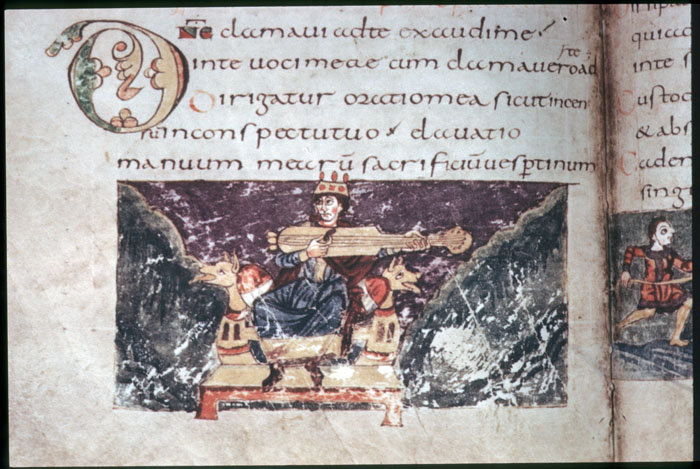 Dn̄e clamaui adte exaudime
te
inte uocimeae cum clamaueroad
Dirigatur oratiomea sicutincen
suinconspectutuo elauatio
manuum mearū sacrificiūuesp̄tinum
quiac
inte s
Custod
& abs
Cader
sing